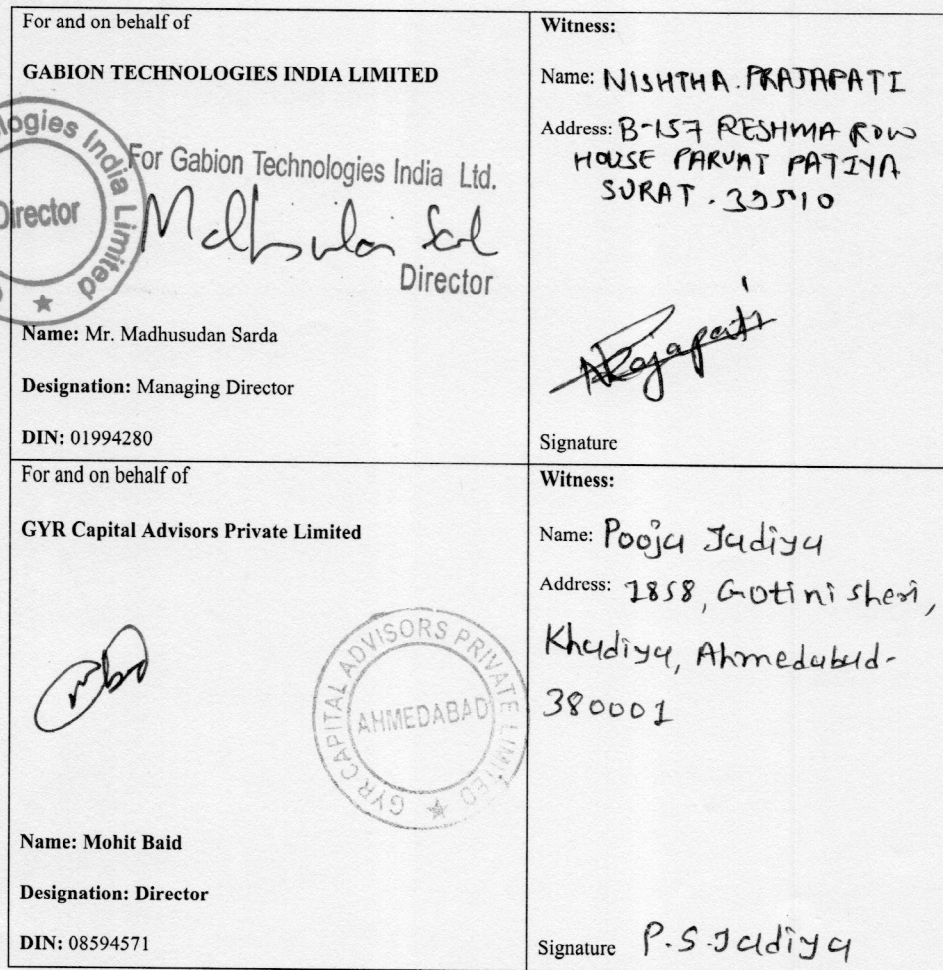 For and on behalf of
GABION TECHNOLOGIES INDIA LIMITED
ologies India Limited
Director
For Gabion Technologies India Ltd.
Director
Name: Mr. Madhusudan Sarda
Designation: Managing Director
DIN: 01994280
Witness:
Name: NISHTHA. PRAJAPATI
Address: B-157 RESHMA ROW
HOUSE PARVAT PATIYA
SURAT.
NPrajapati
Signature
For and on behalf of
GYR Capital Advisors Private Limited
GYR CAPITAL ADVISORS PRIVATE LIMITED
AHMEDABAD
Name: Mohit Baid
Designation: Director
DIN: 08594571
Witness:
Name: Pooja Jadiya
Address: 1858, Gotini sheri,
Khadiya, Ahmedabad-
380001
Signature P.S.Jadiya